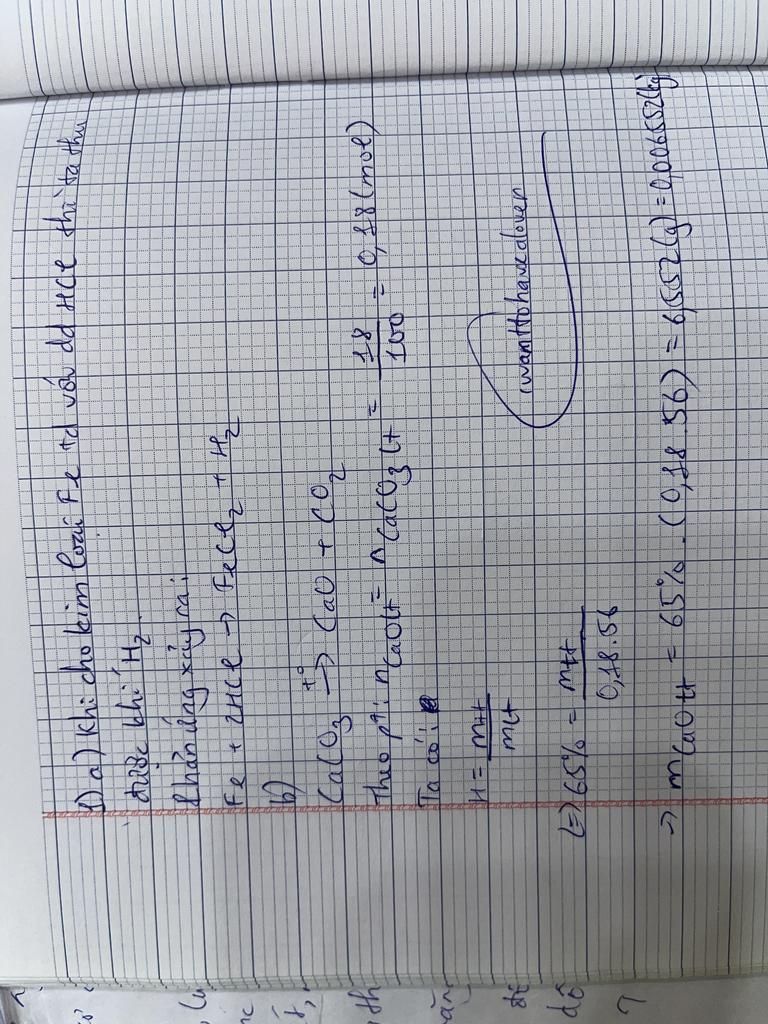 1) a) Khi cho kim loại Fe td với dd HCl thì ta thu
được khí H2.
Phản ứng xảy ra:
Fe + 2HCl → FeCl2 + H2
b)
CaCO3 t°→ CaO + CO2
Theo pt: nCaOlt = nCaCO3lt = 18/100 = 0,18 (mol)
Ta có:
H = mtt/mlt
iwanttohavealover
(=) 65% = mtt/0,18.56
→ mCaOtt = 65%.(0,18.56) = 6,552(g) = 0,006552(kg)